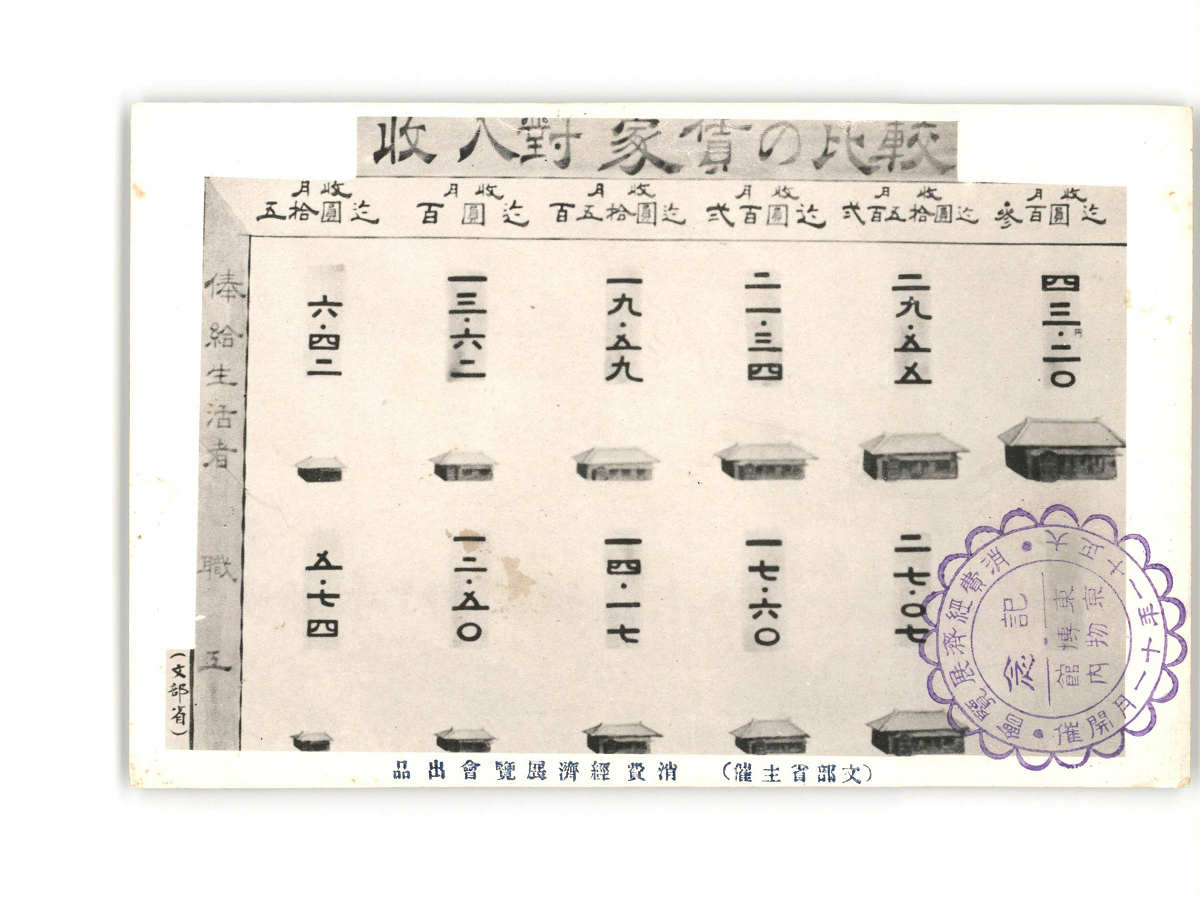 收入對家賃の比較
月收
五拾圓迄
月收
百圓迄
月收
百五拾圓迄
月收
弐百圓迄
月收
弐百五拾圓迄
月收
参百圓迄
俸給生活者
六・四二
一三・六二
一九・五九
二一・三四
二九・五五
四三円・二〇
職工
五・七四
一二・五〇
一四・一七
一七・六〇
二七・〇七
(文部省)
(文部省主催) 消費經濟展覽會出品
消費經濟展覽會
大正十一年十一月開催
記念
東京博物館内